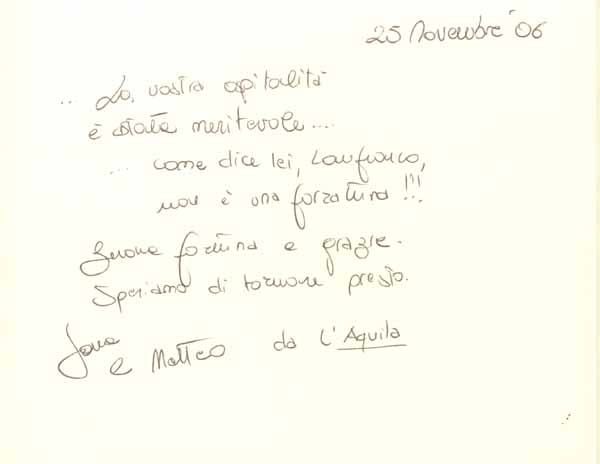 25 Novembre '06
.. La vostra ospitalità
è stata meritevole ....
... come dice lei, Lanfranco,
non è una forzatura !!!
Buona fortuna e grazie.
Speriamo di tornare presto.
e Matteo da L'Aquila